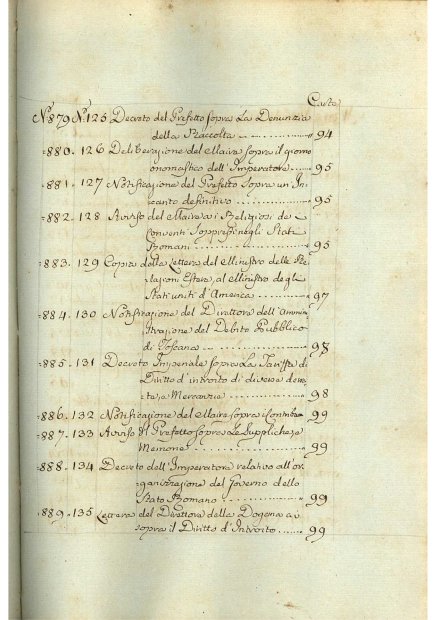 Carte
No. 879 No. 125 Decreto del Prefetto sopra La Denunzia
della Raccolta 94
880. 126 Deliberazione del Maire sopra il giorno
onomastico dell'Imperatore 95
881. 127 Notificazione del Prefetto sopra un In
canto definitivo 95
882. 128 Avviso del Maire a i Religiosi de
Conventi Soppressi negli Stati
Romani 95
883. 129 Copia della Lettera del Ministro delle Re
lazioni Estere, al Ministro degli
Stati uniti d'America 97
884. 130 Notificazione del Direttore dell'Ammi
istrazione del Debito Pubblico
di Toscana 98
885. 131 Decreto Imperiale sopra La Tariffa di
Diritto d'introito di diverse
Mercanzie 98
886. 132 Notificazione del Maire sopra 99
887. 133 Avviso del Prefetto sopra Le Suppliche, e
Memorie 99
888. 134 Decreto dell'Imperatore relativo all'or
ganizzazione del Governo dello
Stato Romano 99
889. 135 Lettera del Direttore della Dogana
sopra il Diritto d'Introito 99